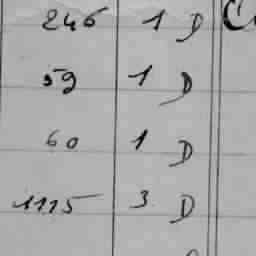 246 1 D
59 1 D
60 1 D
1115 3 D